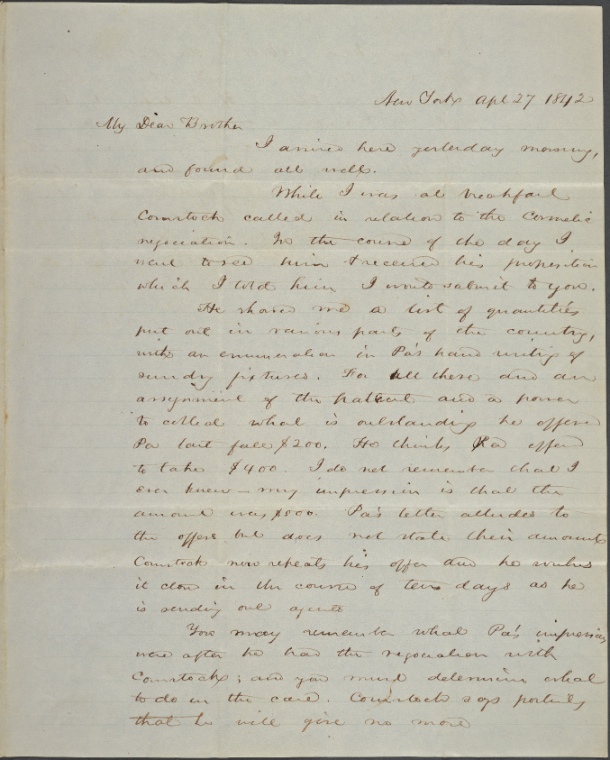 New York Apl 27 1842
My Dear Brother
I arrived here yesterday morning,
and found all well.
While I was at breakfast
Comstock called in relation to the Cosmetic
negociation. In the course of the day I
went to see him & received his proposition
which I told him I would submit to you.
He showed me a list of quantities
put out in various parts of the country,
with an enumeration in Pa's hand writing of
sundry fixtures. For all these and an
assignment of the patent and a power
to collect what is outstanding he offered
Pa last fall $200. He thinks Pa offered
to take $400. I do not remember that I
ever knew – my impression is that the
amount was $800. Pa's letter alludes to
the offers but does not state their amounts
Comstock now repeats his offer and he wishes
it closed in the course of ten days as he
is sending out agents
You may remember what Pa's impressions
were after he had the negociation with
Comstock; and you must determine what
to do in the case. Comstock says positively
that he will give no more